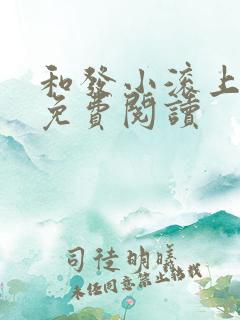 和發小滚上
免費閱讀
司徒明曦
未经同意禁止转载